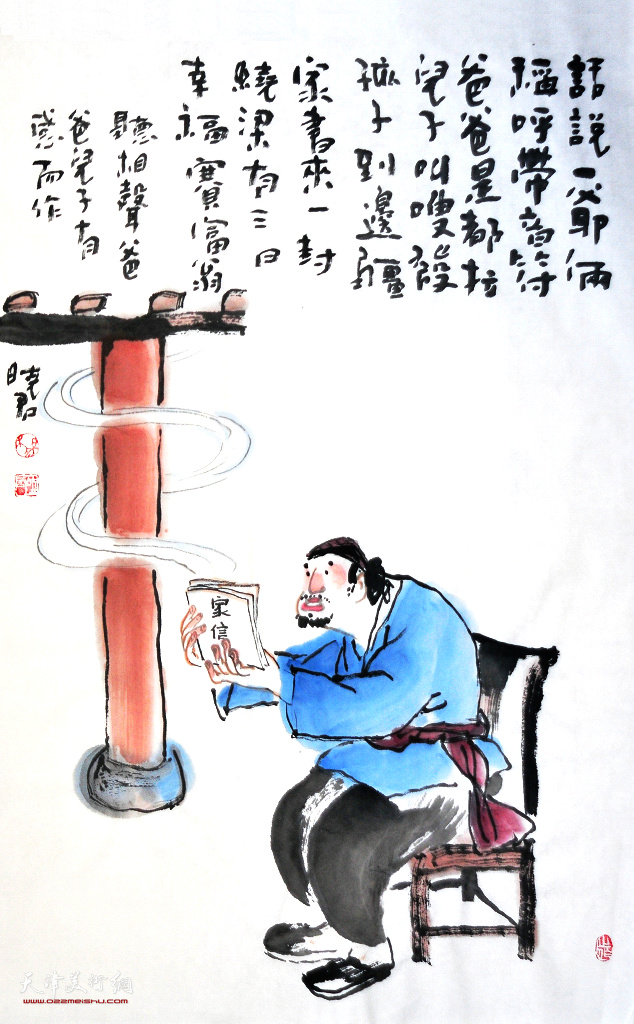 話說一爺俩
稱呼帶音符
爸爸是都拉
兒子叫嗖發
孩子到邊疆
家書來一封
繞梁有三日
幸福賽富翁
聽相聲爸
爸兒子有
感而作
曉君
家信
天津美術網
www.022meishu.com